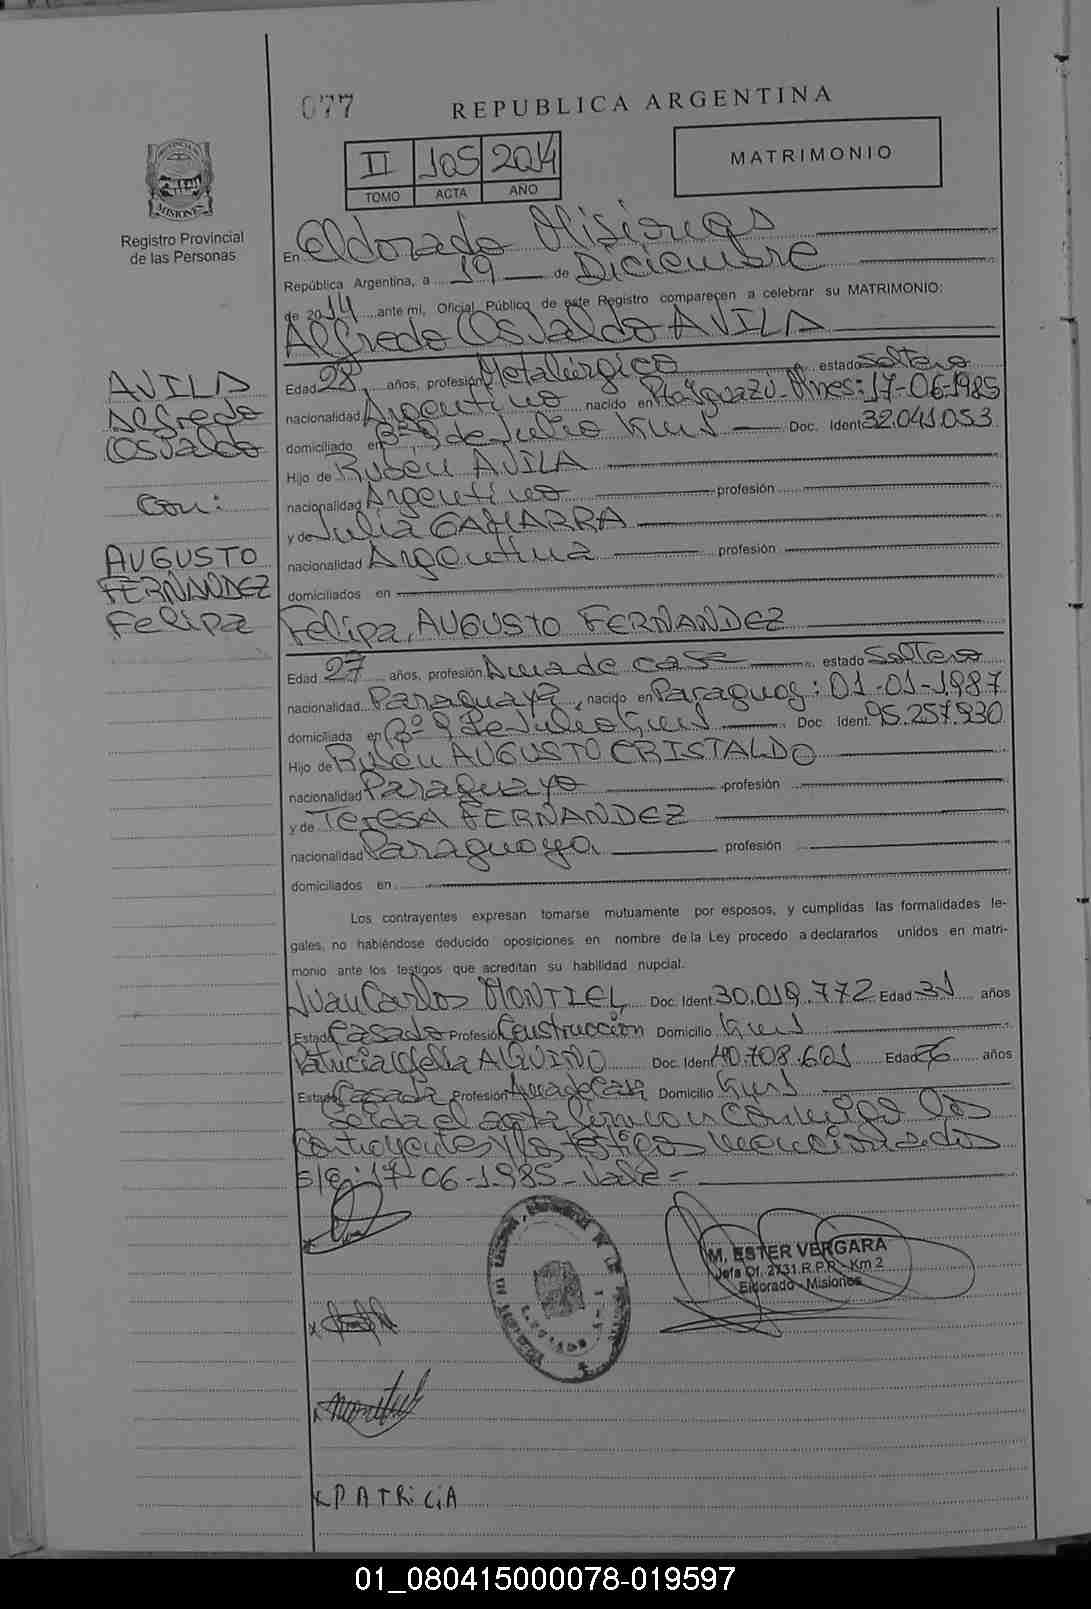 077
REPUBLICA ARGENTINA
II 105 2014
TOMO ACTA AÑO
MATRIMONIO
MISIONES
Registro Provincial
de las Personas
En Eldorado Misiones
República Argentina, a 19 de Diciembre
de 2014 ante mi, Oficial Público de este Registro comparecen a celebrar su MATRIMONIO:
Alfredo Osvaldo AVILA
AVILA
Alfredo
Osvaldo
Con:
AUGUSTO
FERNANDEZ
Felipa
Edad 28 años, profesión Metalúrgico estado Soltero
nacionalidad Argentino nacido en Mnes: 17-06-1985
domiciliado en Bº 9 de Julio Km 1 Doc. Ident 32.041.053
Hijo de Ruben AVILA
nacionalidad Argentino profesión
y de Julia GAMARRA
nacionalidad Argentina profesión
domiciliados en
Felipa, AUGUSTO FERNANDEZ
Edad 27 años, profesión Ama de casa estado Soltera
nacionalidad Paraguaya, nacido en Paraguay: 01-01-1987
domiciliada en Bº 9 De Julio Km 1 Doc Ident. 95.257.930
Hijo de Ruben AUGUSTO CRISTALDO
nacionalidad Paraguayo profesión
y de Teresa FERNANDEZ
nacionalidad Paraguaya profesión
domiciliados en
Los contrayentes expresan tomarse mutuamente por esposos, y cumplidas las formalidades le-
gales, no habiéndose deducido oposiciones en nombre de la Ley procedo a declararlos unidos en matri-
monio ante los testigos que acreditan su habilidad nupcial.
Juan Carlos MONTIEL Doc. Ident 30.019.772 Edad 31 años
Estado Casado Profesión Construcción Domicilio Km 1
Patricia AQUINO Doc. Ident 40.708.601 Edad años
Estado Casada Profesión Ama de Casa Domicilio Km 1
Leida el acta firman conmigo los
contrayentes y los testigos mencionados
S/R: 17-06-1985- Vale=
M. ESTER VERGARA
Jefa Of. 2731 R.P.P. - Km 2
Eldorado - Misiones
x
x
x Montiel
x PATRICIA
01_080415000078-019597